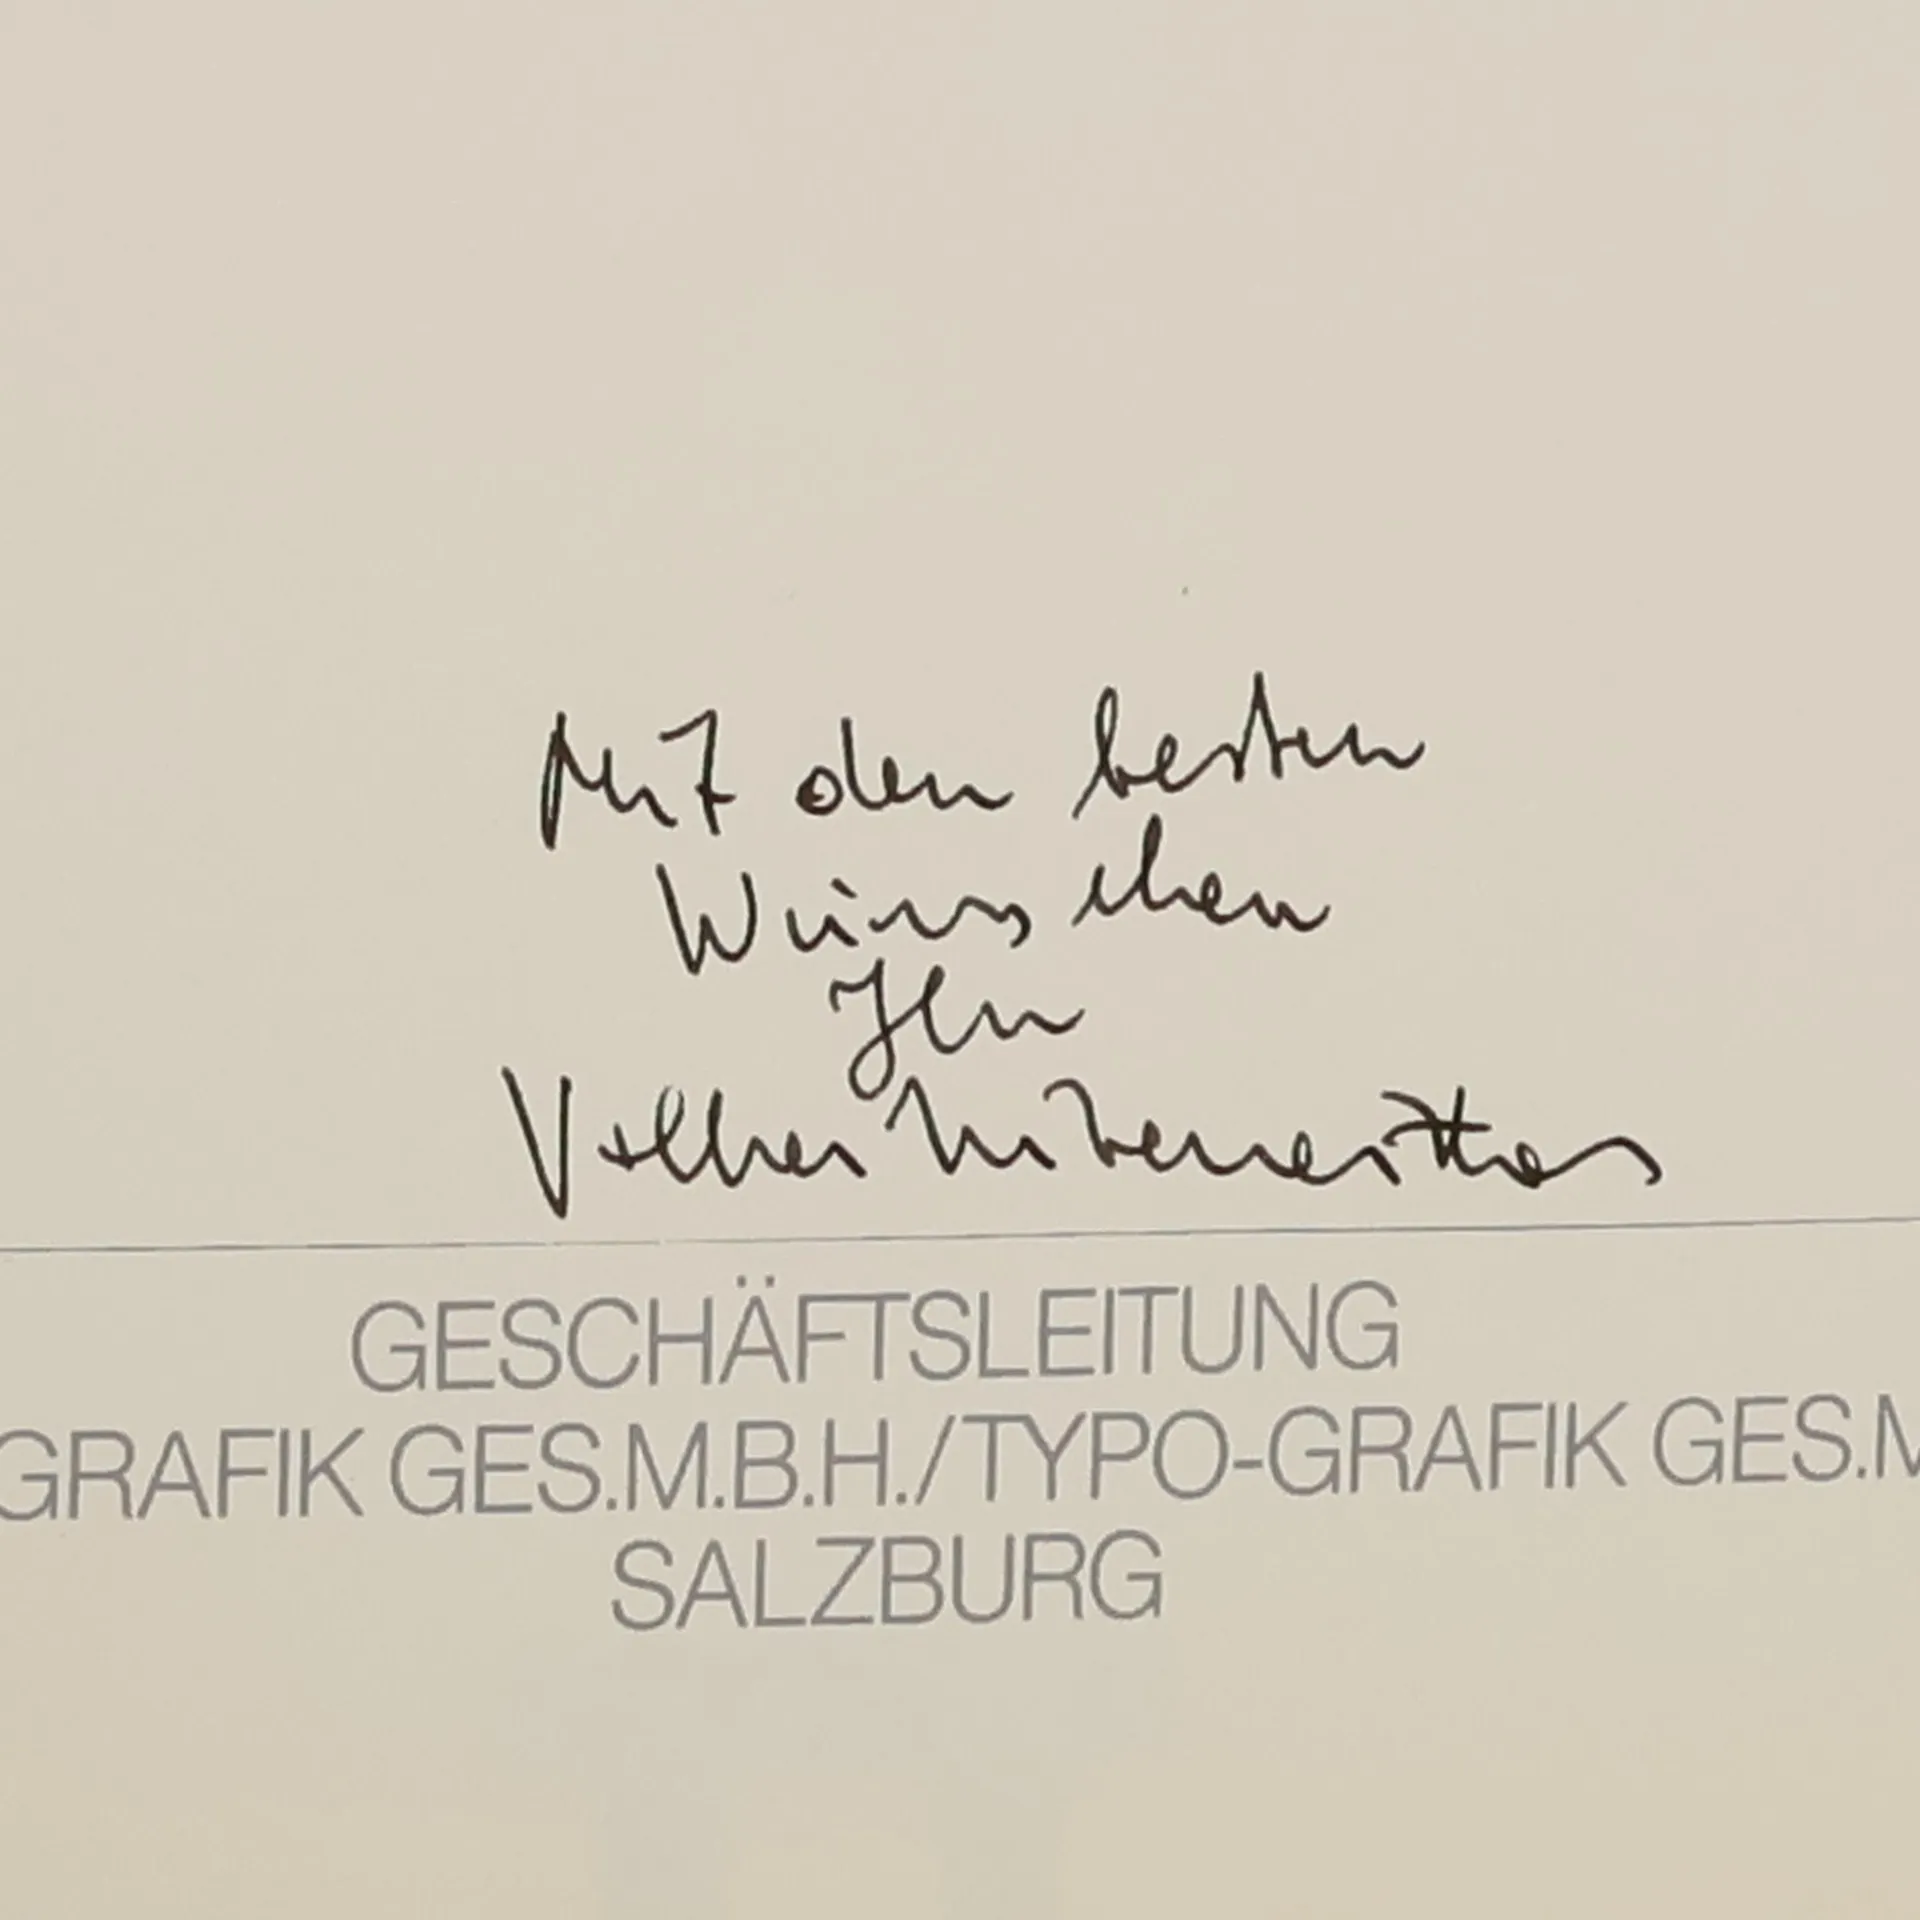 Mit den besten
Wünschen
Ihr
Volker
GESCHÄFTSLEITUNG
GRAFIK GES.M.B.H./TYPO-GRAFIK GES.M
SALZBURG